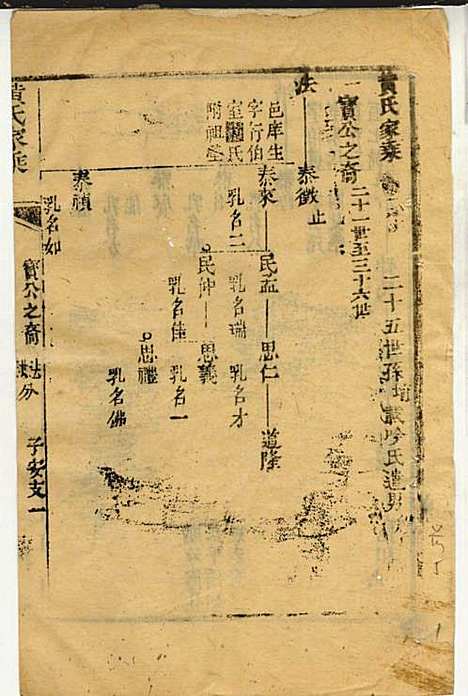 黃氏家乘
二十五世孫
氏遺男
寶公之裔 二十一世至三十六世
法
泰徵 止
邑庠生
字行伯
室 氏
附祖塋
泰來 民孟 思仁 道隆
乳名二 乳名瑞 乳名才
民仲 思義
乳名佳 乳名一
思禮
乳名佛
泰禎
乳名如
黃氏家乘
寶公之裔
子安支一